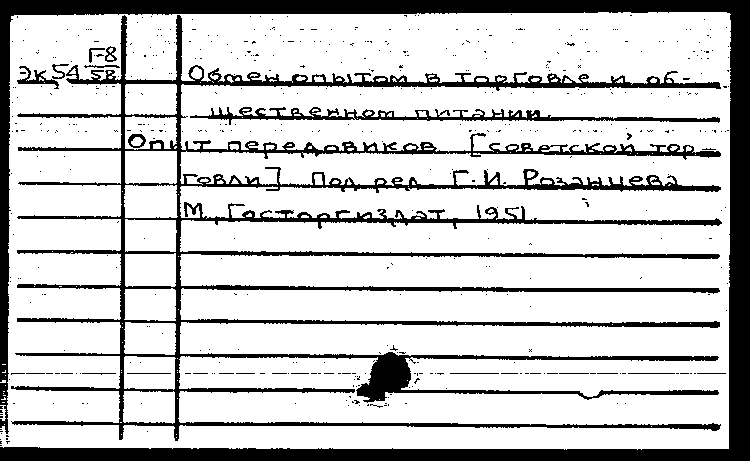 Г-8
Эк54 58 Обмен опытом в торговле и об-
щественном питании.
Опыт передовиков [советской тор-
говли] Под ред. Г.И. Розанцева
М., Госторгиздат, 1951.